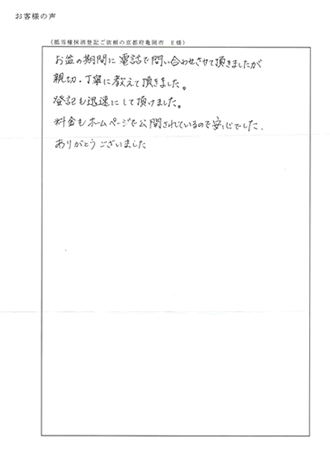 お客様の声
(抵当権抹消登記ご依頼の京都府亀岡市 E様)
お盆の期間に電話で問い合わせさせて頂きましたが
親切・丁寧に教えて頂きました。
登記も迅速にして頂けました。
料金もホームページで公開されているので安心でした.
ありがとうございました